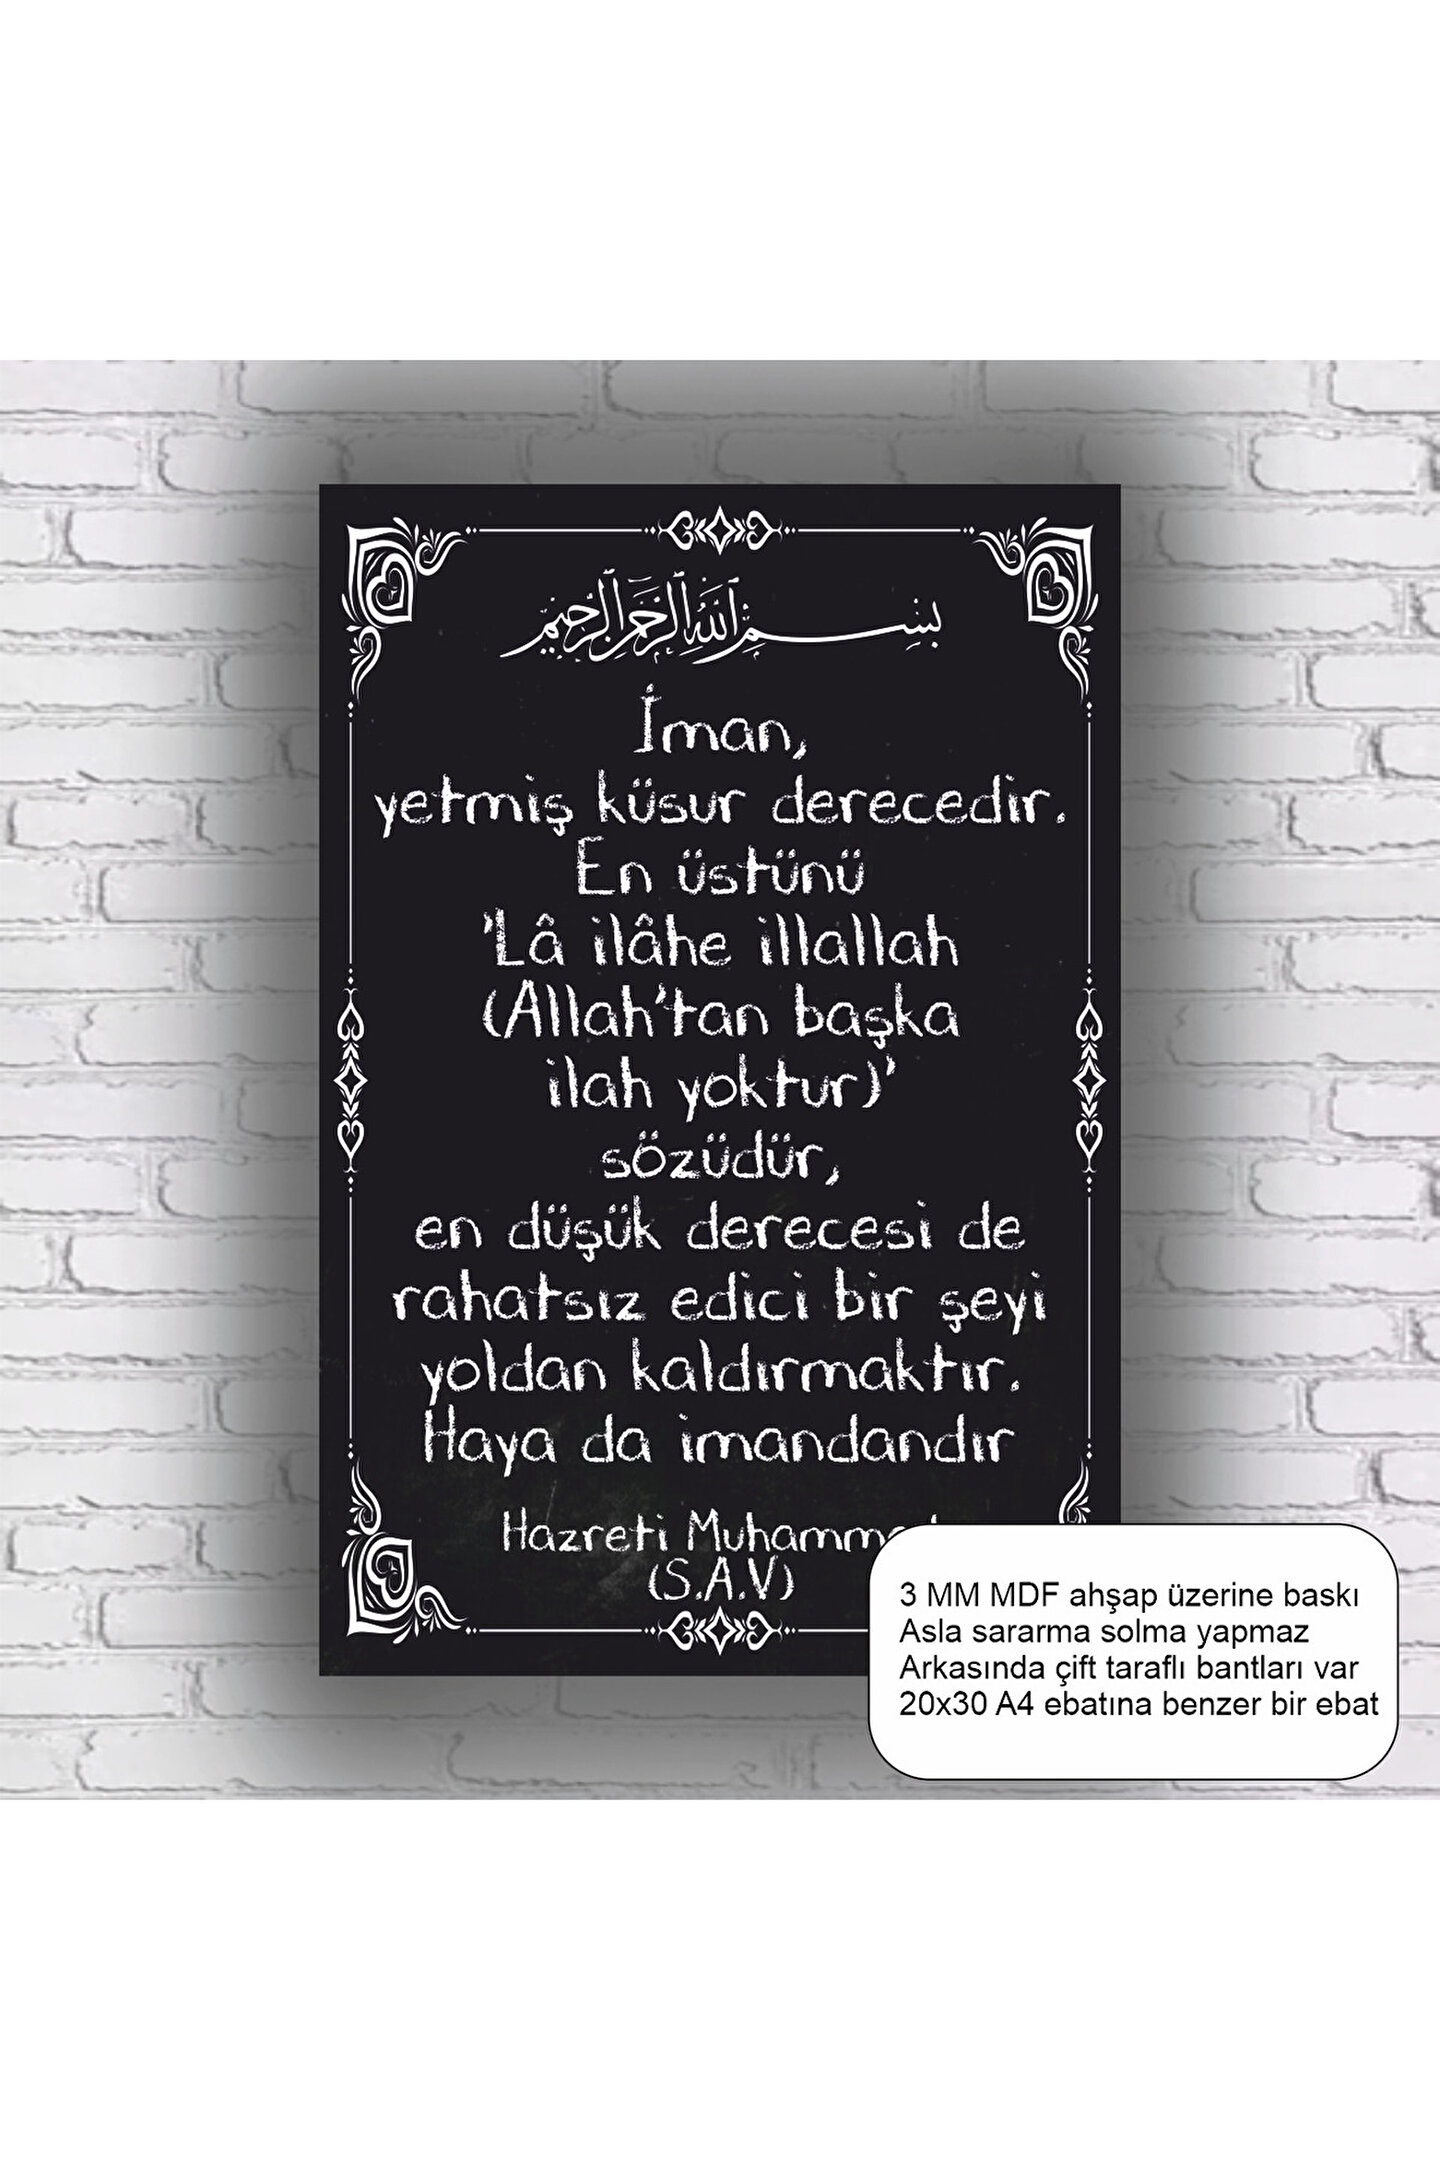 بسم الله الرحمن الرحيم
İman,
yetmiş küsur derecedir.
En üstünü
'Lâ ilâhe illallah
(Allah'tan başka
ilah yoktur)'
sözüdür,
en düşük derecesi de
rahatsız edici bir şeyi
yoldan kaldırmaktır.
Haya da imandandır
Hazreti
(S.A.V)
3 MM MDF ahşap üzerine baskı
Asla sararma solma yapmaz
Arkasında çift taraflı bantları var
20x30 A4 ebatına benzer bir ebat